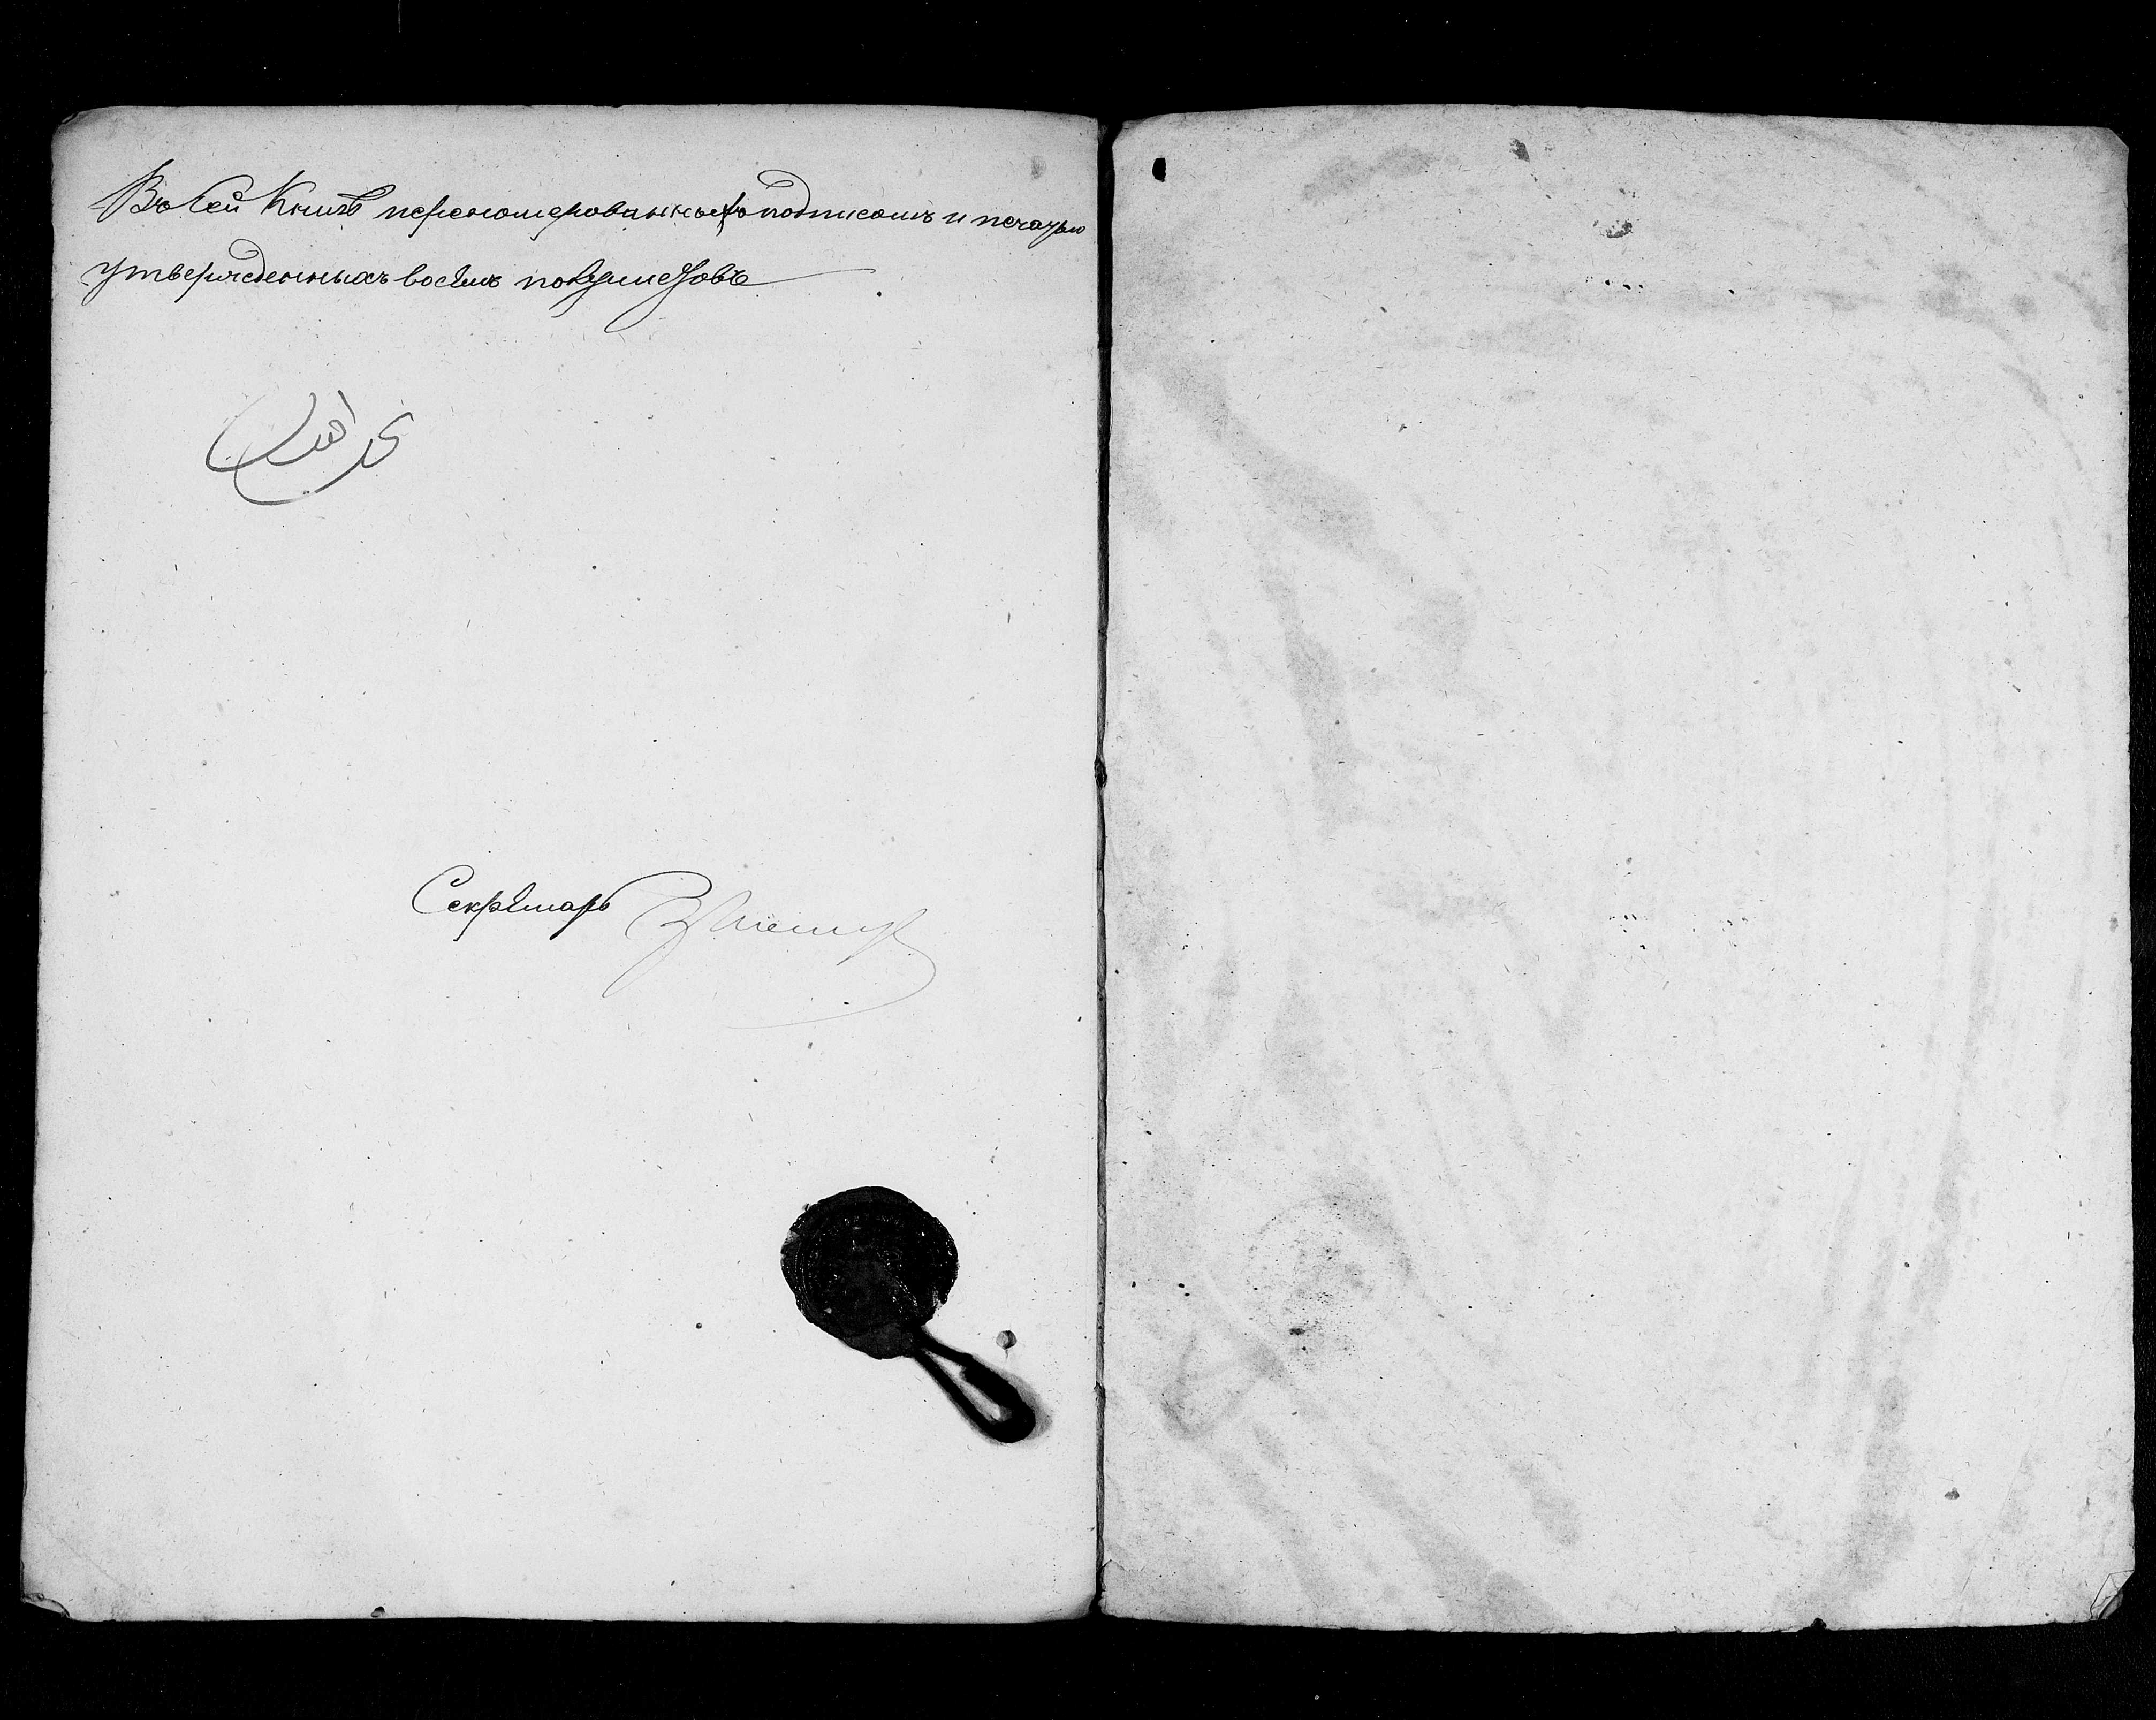 Въ сей Книгѣ переномерованныхъ подписомъ и печатью
утвержденныхъ восемь полулистовъ
Секретарь